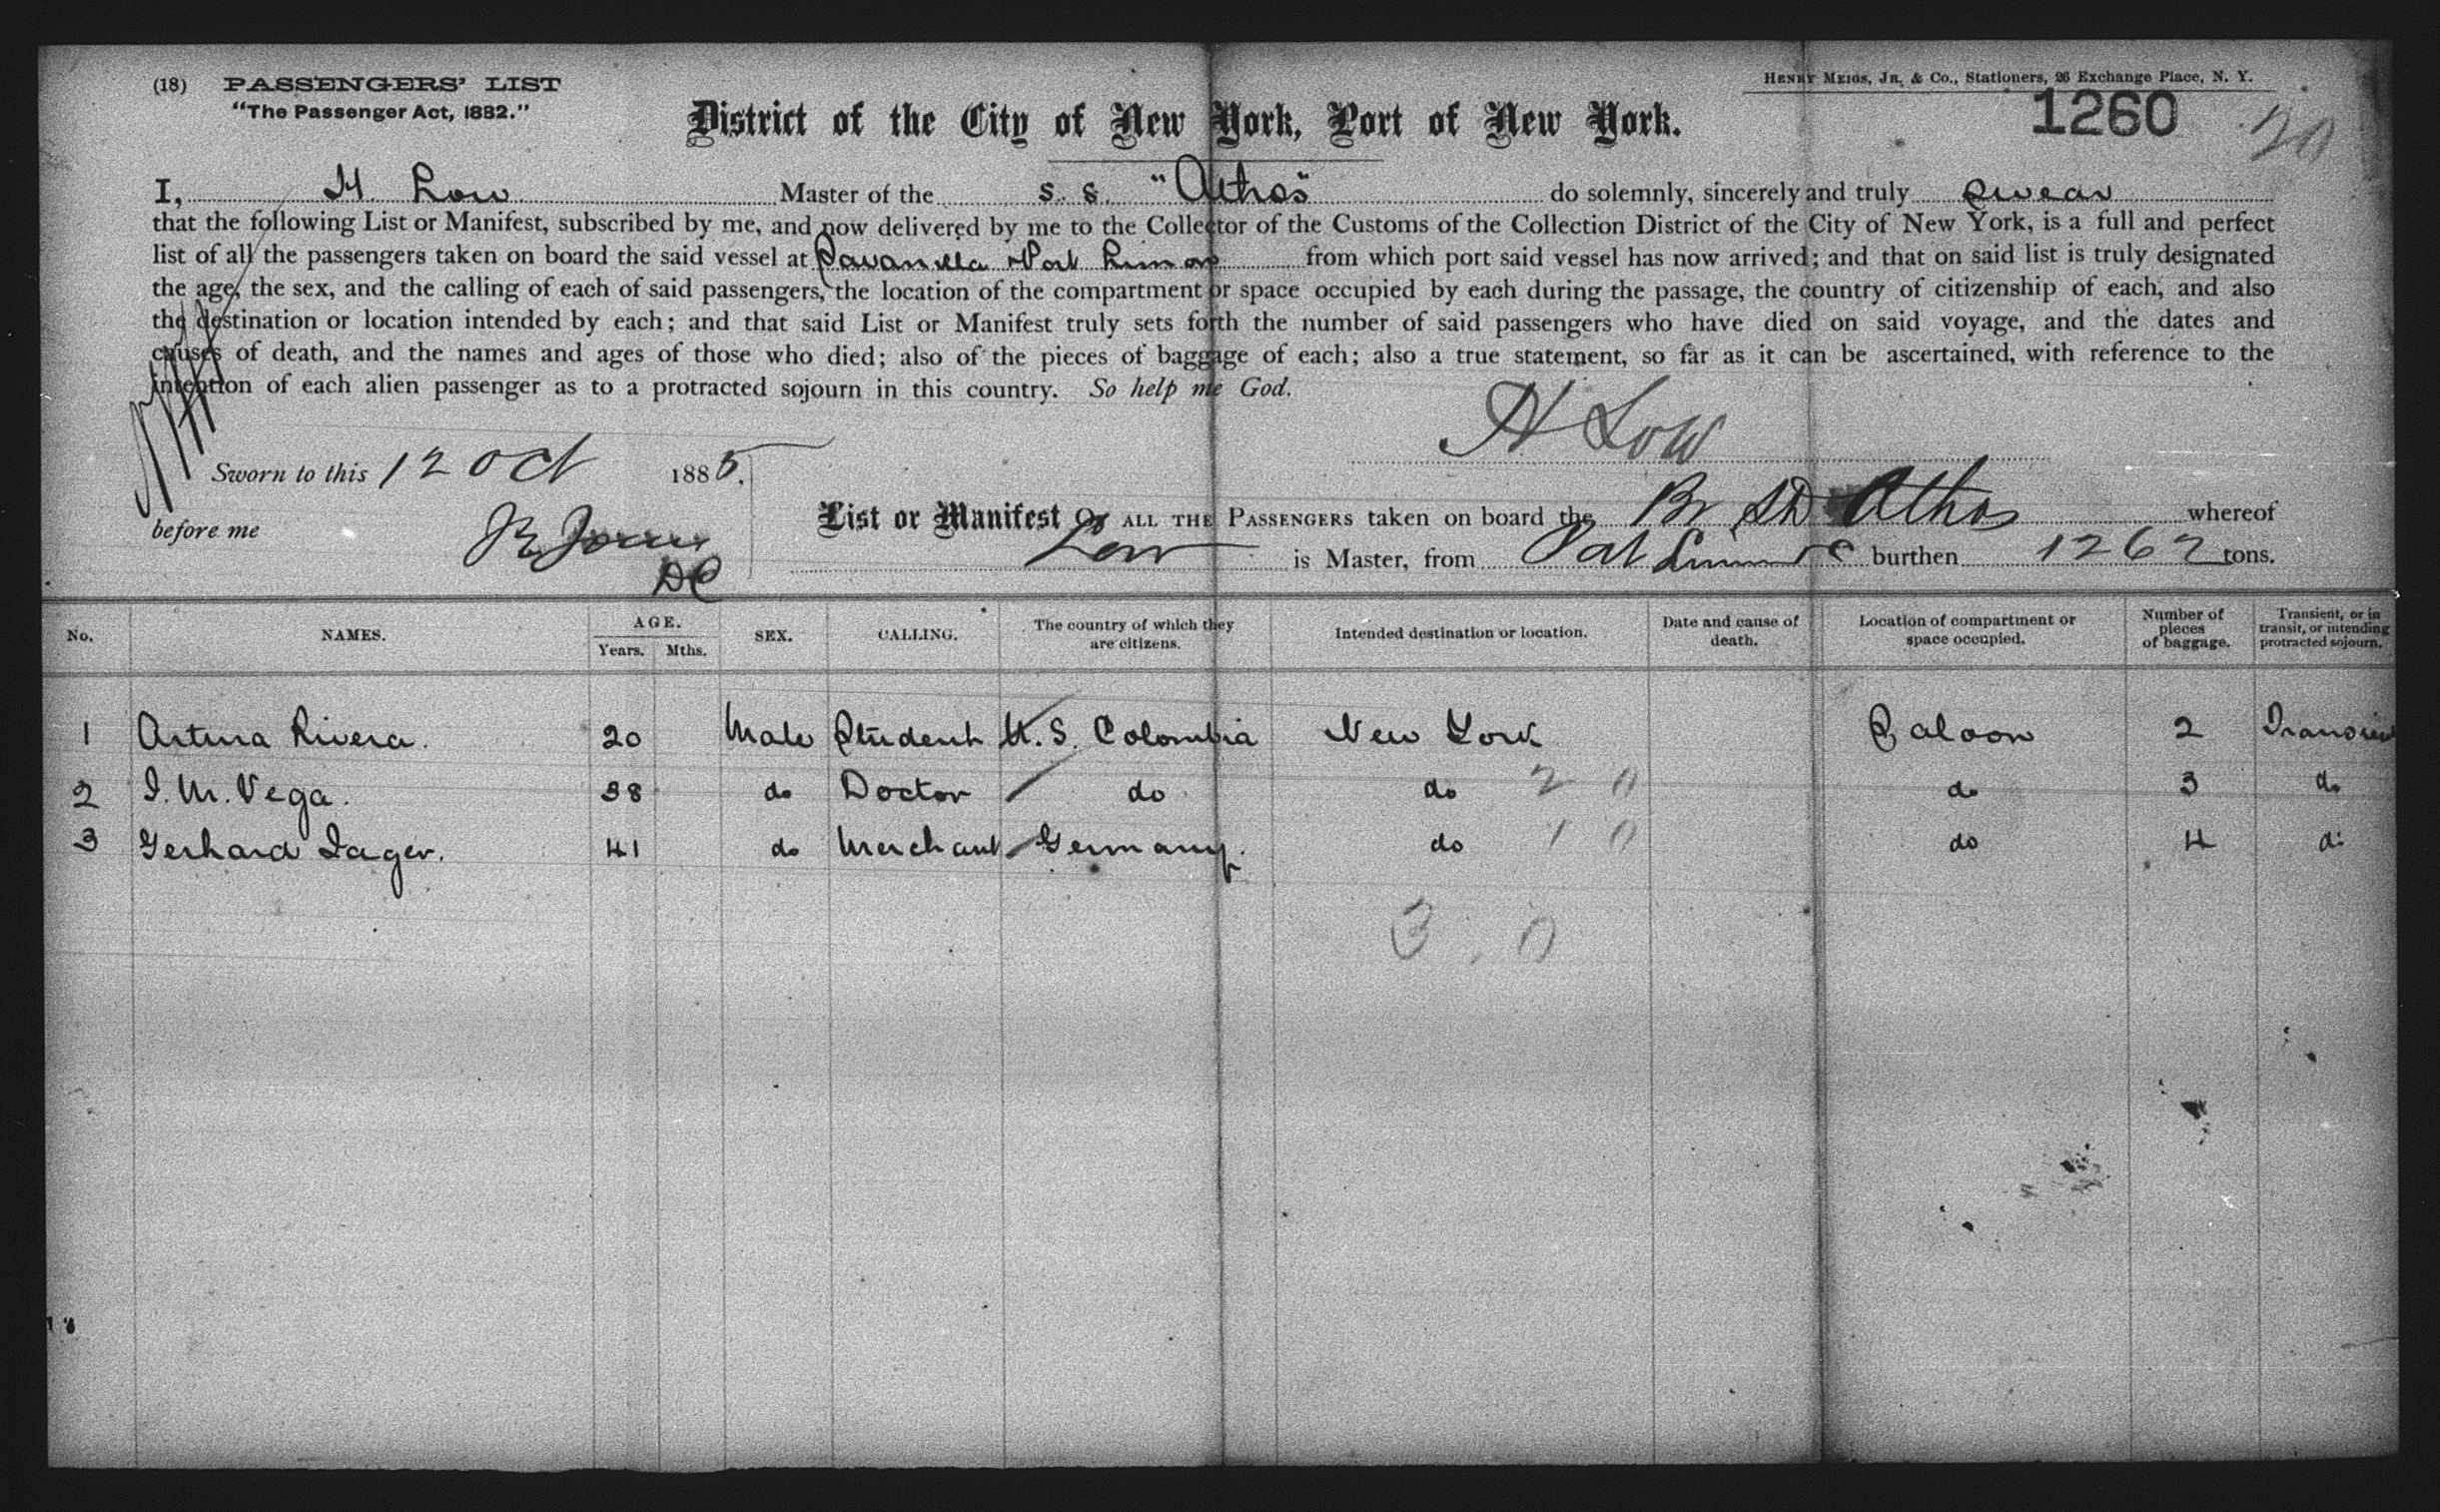 (18) PASSENGERS' LIST
"The Passenger Act, 1882."
HENRY MEIGS, JR. & CO., Stationers, 26 Exchange Place, N. Y.
District of the City of New York, Port of New York.
1260 20
I, H. Low Master of the S. S. "Athos" do solemnly, sincerely and truly swear
that the following List or Manifest, subscribed by me, and now delivered by me to the Collector of the Customs of the Collection District of the City of New York, is a full and perfect
list of all the passengers taken on board the said vessel at Savanilla & Port Limon from which port said vessel has now arrived; and that on said list is truly designated
the age, the sex, and the calling of each of said passengers, the location of the compartment or space occupied by each during the passage, the country of citizenship of each, and also
the destination or location intended by each; and that said List or Manifest truly sets forth the number of said passengers who have died on said voyage, and the dates and
causes of death, and the names and ages of those who died; also of the pieces of baggage of each; also a true statement, so far as it can be ascertained, with reference to the
intention of each alien passenger as to a protracted sojourn in this country. So help me God.
H Low
Sworn to this 12 Oct 1885.
before me
DC
List or Manifest OF ALL THE PASSENGERS taken on board the Br SS Athos whereof
Low is Master, from Port Limon &c burthen 1262 tons.
No. NAMES. AGE. Years. Mths. SEX. CALLING. The country of which they are citizens. Intended destination or location. Date and cause of death. Location of compartment or space occupied. Number of pieces of baggage. Transient, or in transit, or intending protracted sojourn.
1 Artura Rivera. 20 Male Student U. S. Colombia New York Saloon 2 Transient
2 J. M. Vega. 38 do Doctor do do 2 0 do 3 do
3 Gerhard Jager. 41 do Merchant Germany. do 1 0 do 4 do
3 . 0